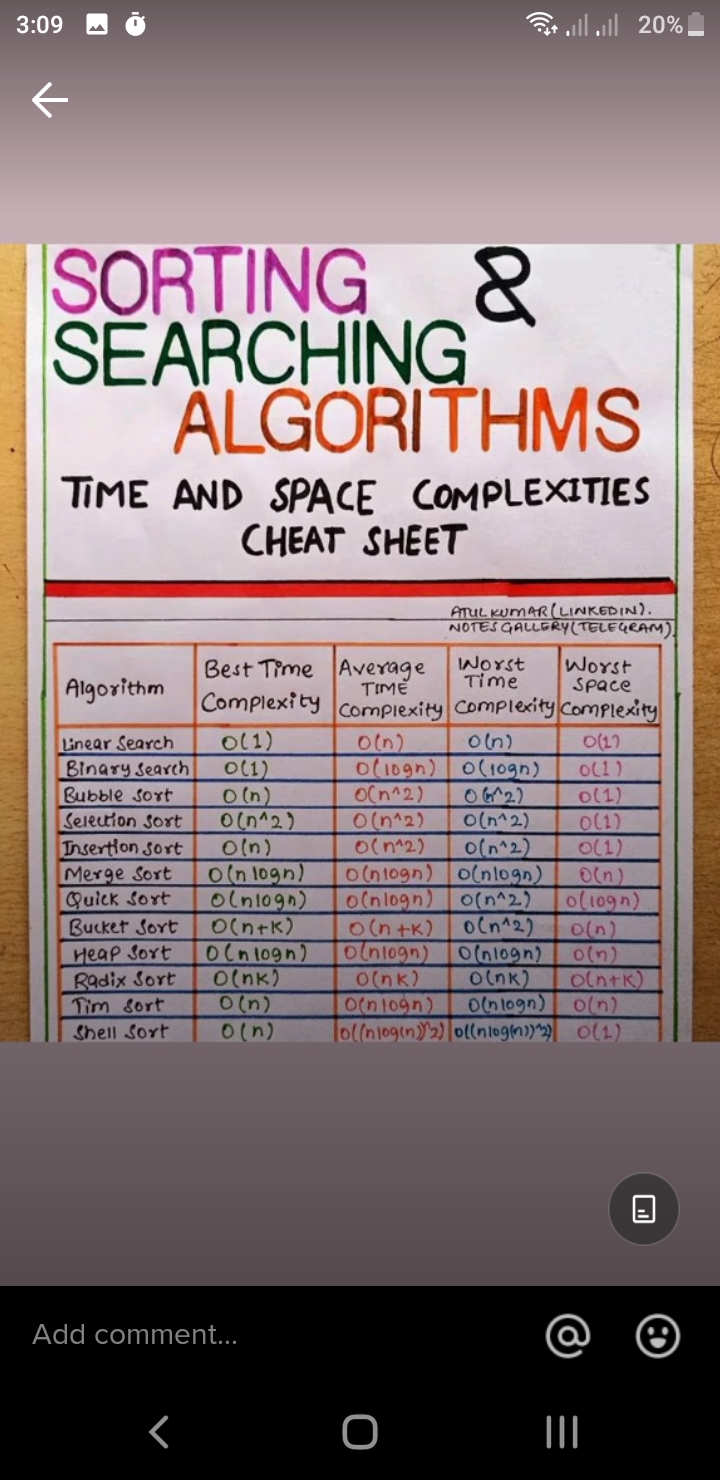 3:09 20%
SORTING &
SEARCHING
ALGORITHMS
TIME AND SPACE COMPLEXITIES
CHEAT SHEET
ATUL KUMAR (LINKEDIN).
NOTES GALLERY (TELEGRAM).
Algorithm Best Time Complexity Average TIME Complexity Worst Time Complexity Worst Space Complexity
Linear Search O(1) O(n) O(n) O(1)
Binary Search O(1) O(logn) O(logn) O(1)
Bubble Sort O(n) O(n^2) O(n^2) O(1)
Selection Sort O(n^2) O(n^2) O(n^2) O(1)
Insertion Sort O(n) O(n^2) O(n^2) O(1)
Merge Sort O(n logn) O(nlogn) O(nlogn) O(n)
Quick Sort O(nlogn) O(nlogn) O(n^2) O(logn)
Bucket Sort O(n+K) O(n+K) O(n^2) O(n)
Heap Sort O(nlogn) O(nlogn) O(nlogn) O(n)
Radix Sort O(nK) O(nK) O(nK) O(n+K)
Tim Sort O(n) O(nlogn) O(nlogn) O(n)
Shell Sort O(n) O((nlog(n))^2) O((nlog(n))^2) O(1)
Add comment...